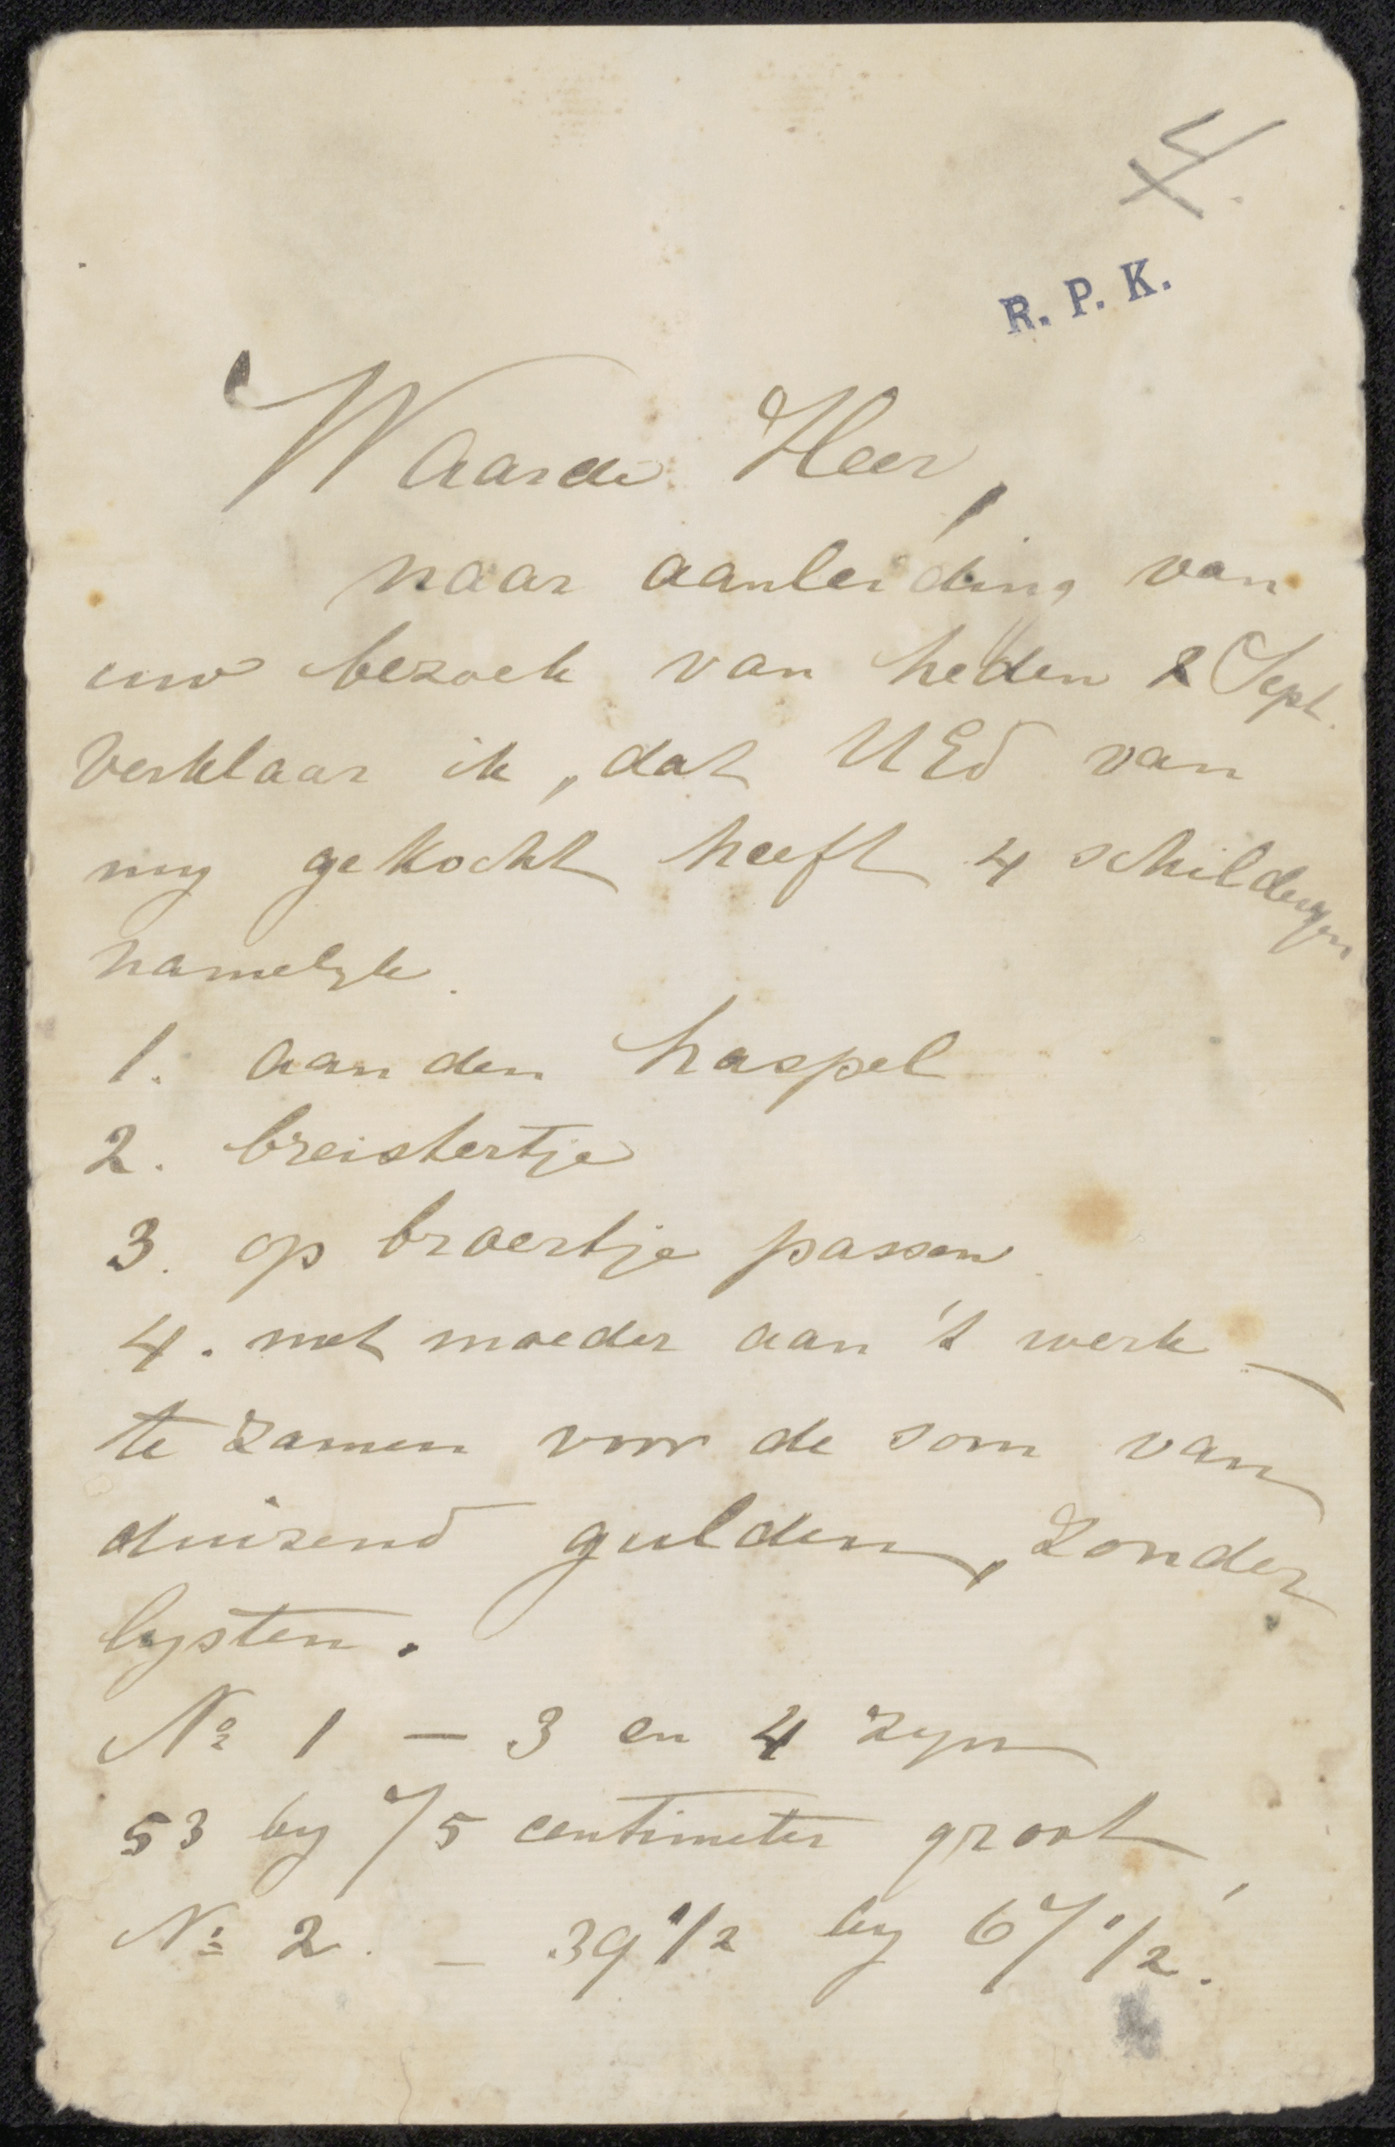 4.
R. P. K.
Waarde Heer,
naar aanleiding van
uw bezoek van heden 2 Sept.
verklaar ik, dat UEd van
my gekocht heeft 4 schilderyen
namelyk.
1. aan den haspel
2. breistertje
3. op broertje passen
4. met moeder aan 't werk –
te zamen voor de som van
duizend gulden, zonder
lysten.
No 1 – 3 en 4 zyn
53 by 75 centimeter groot,
No 2. – 39 1/2 by 67 1/2.